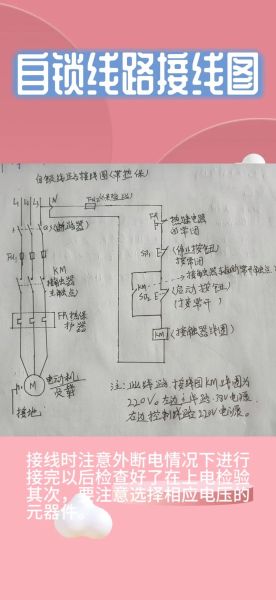 自锁线路接线图
自锁线路接线图(带热保)
L1 L2 L3 N
FU2(保险丝)
Q(断路器)
FR
热继电器
的常闭
FU1
SB1 E (停止按钮)
接常闭
KM
接触器
主触点
KM
SB2 E (启动按钮)
(接常开)
FR热保
护器
KM (接触器线圈)
M 电动机
负载
接地
注:此线路接线图KM线圈为
220V。左边主线路380V电源
右边控制线路220V电源。
接线时注意外断电情况下进行
接完以后检查好了在上电检验
其次，要注意选择相应电压的
元器件。